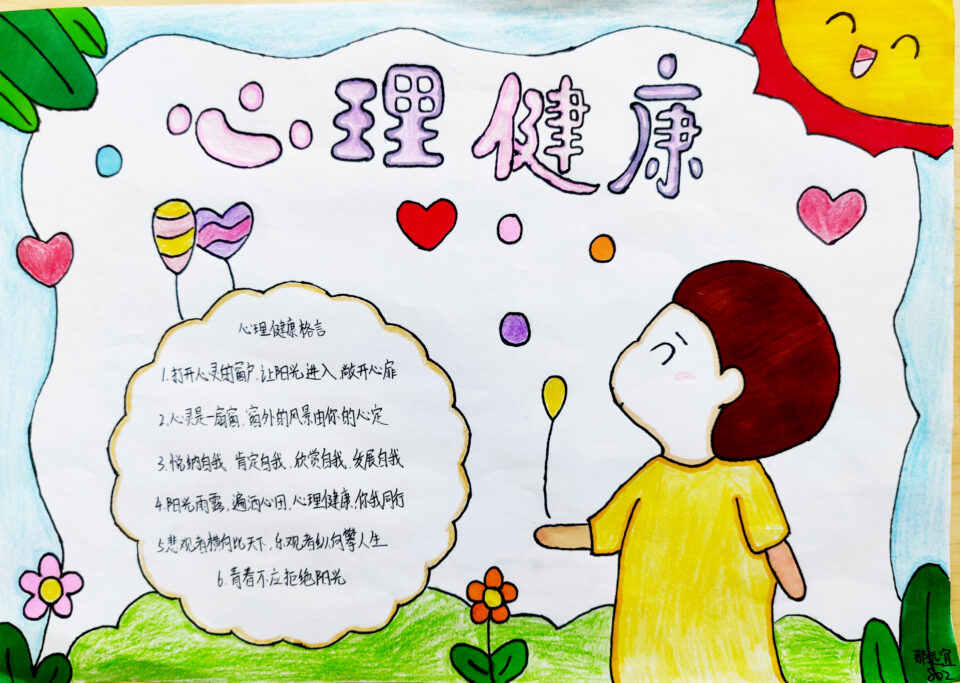 心理健康
心理健康格言
1.打开心灵的窗户,让阳光进入,敞开心扉
2.心灵是一扇窗,窗外的风景由你的心定
3.悦纳自我 肯定自我,欣赏自我,发展自我
4.阳光雨露,遍洒心田,心理健康,你我同行
5.悲观者横向比天下,乐观者纵向攀人生
6.青春不应拒绝阳光
202